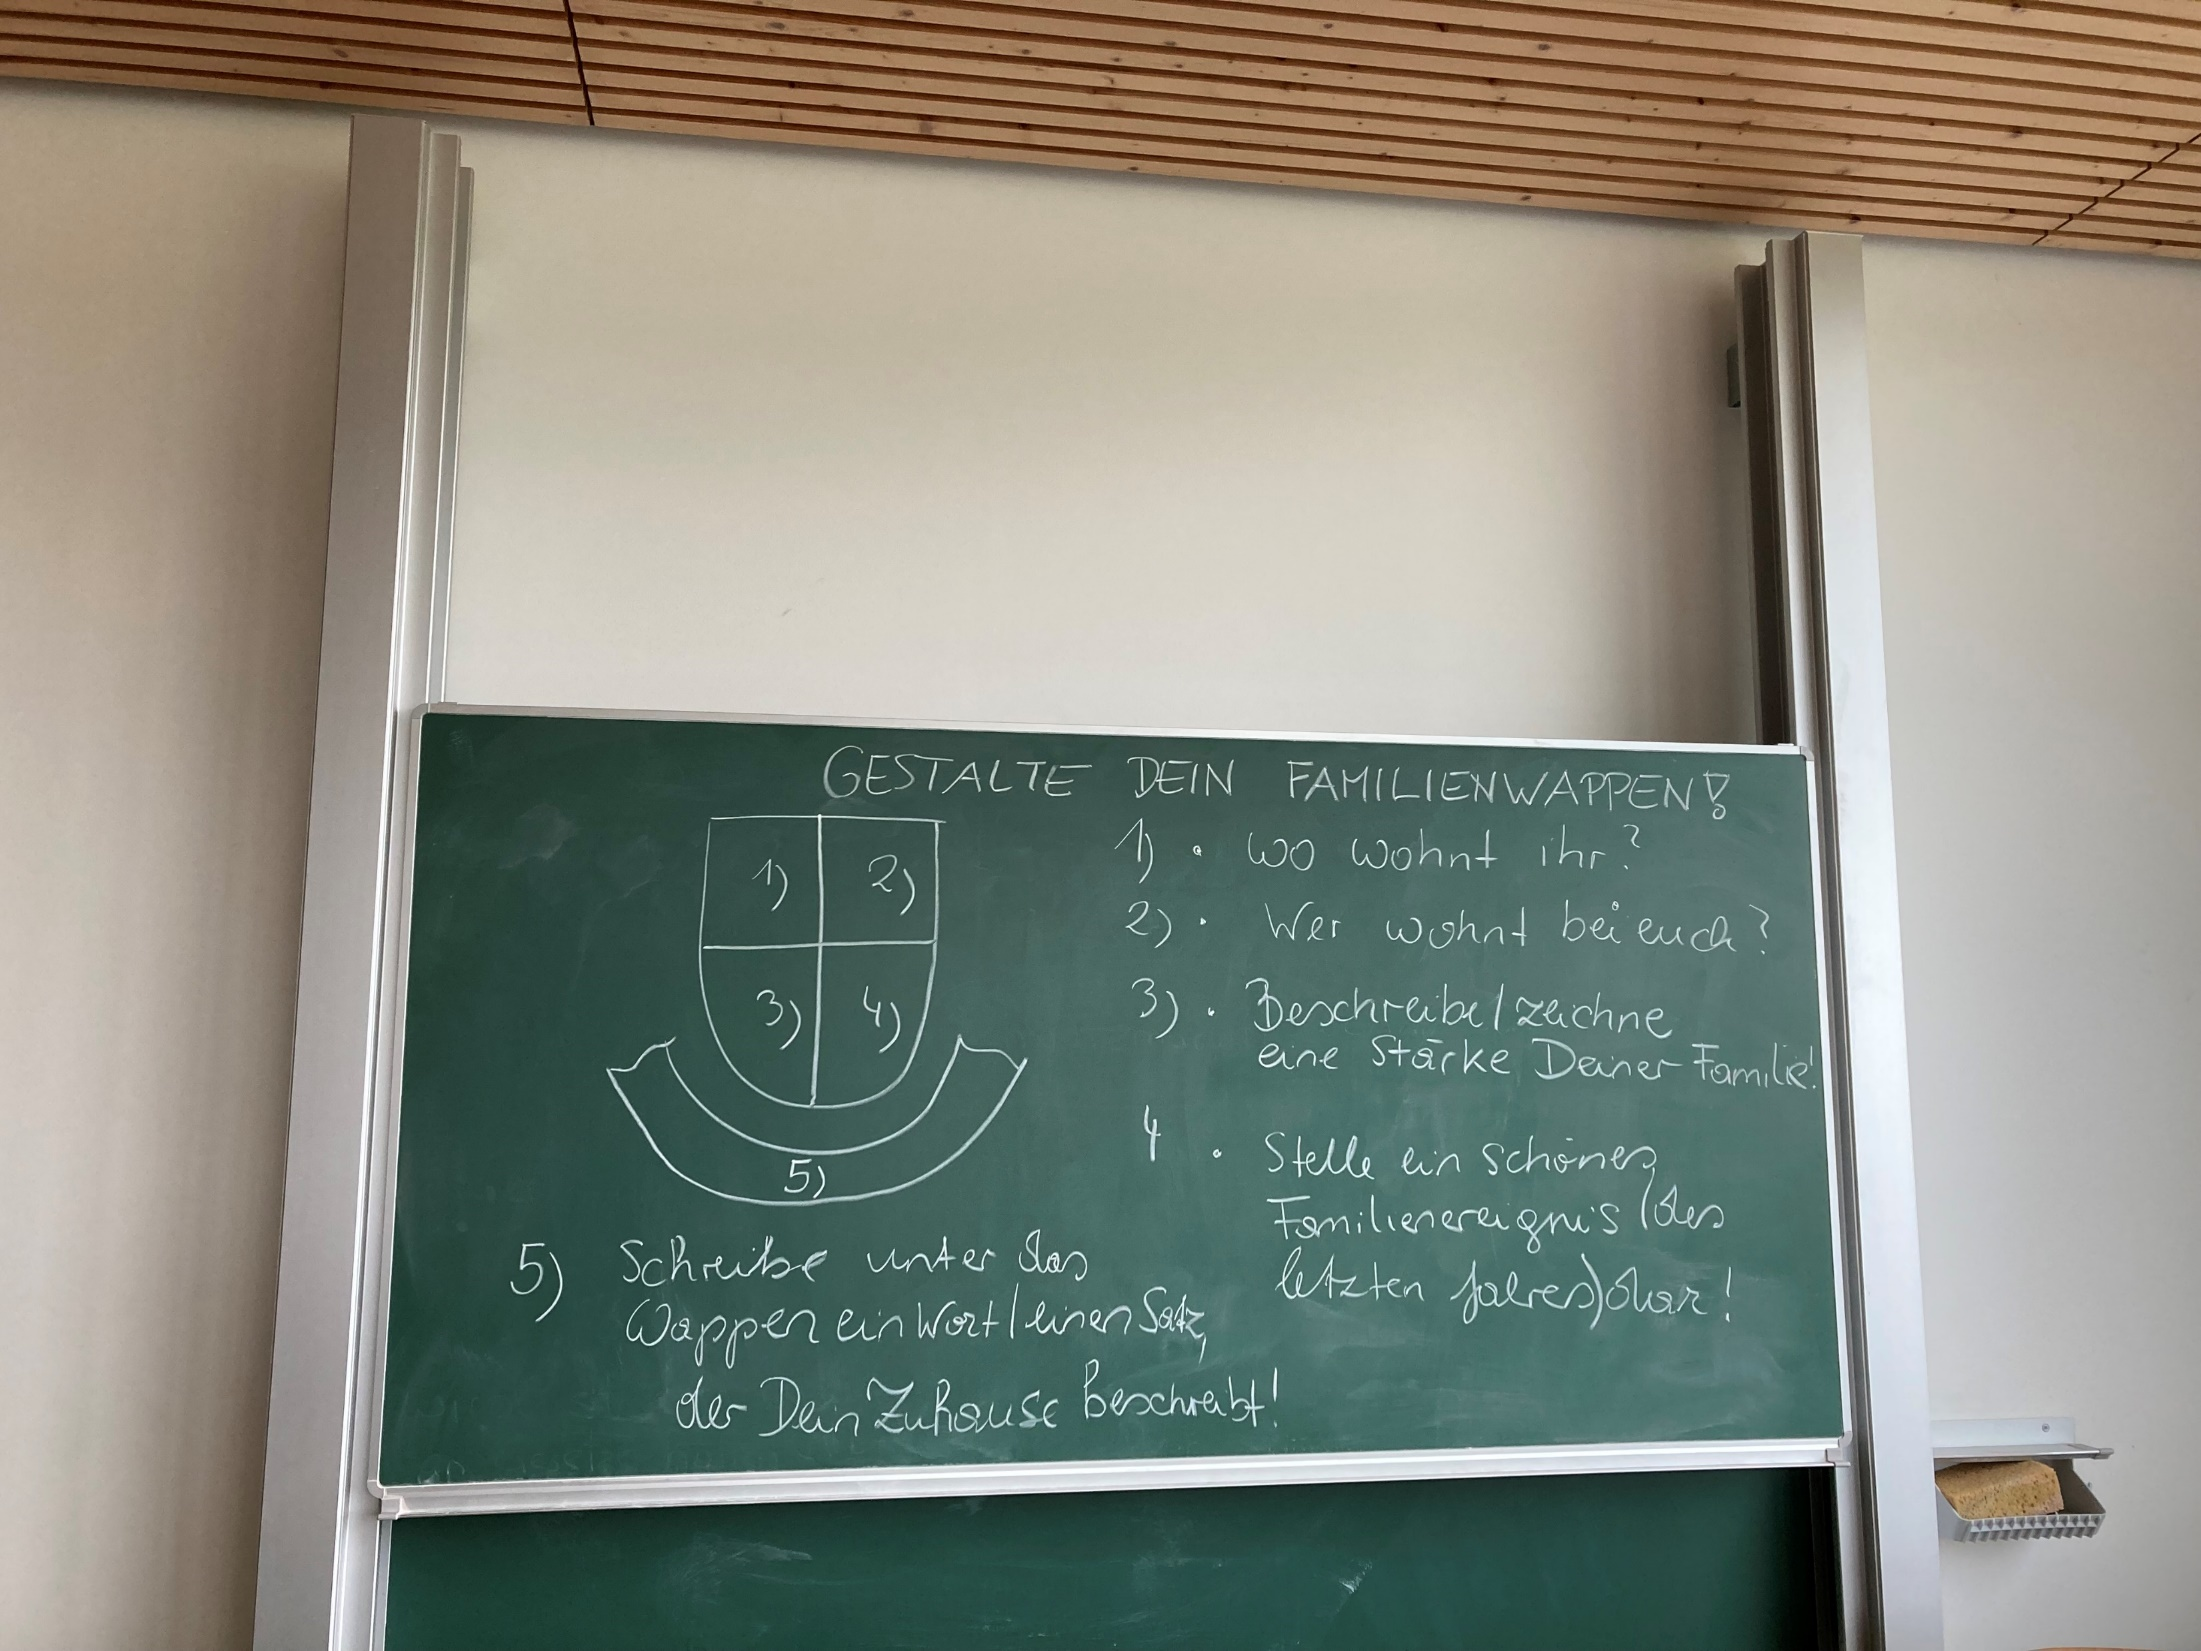 GESTALTE DEIN FAMILIENWAPPEN!
1) 2)
3) 4)
5)
1) • Wo wohnt ihr?
2) • Wer wohnt bei euch?
3) • Beschreibe/zeichne
eine Stärke Deiner Familie!
4 • Stelle ein schönes
Familienereignis (des
letzten Jahres) dar!
5) Schreibe unter das
Wappen ein Wort/einen Satz,
der Dein Zuhause beschreibt!